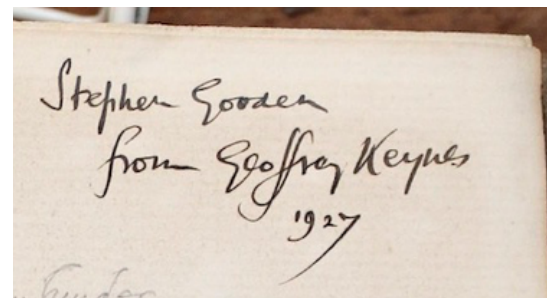 Stephen Gooden
from Geoffrey Keynes
1927